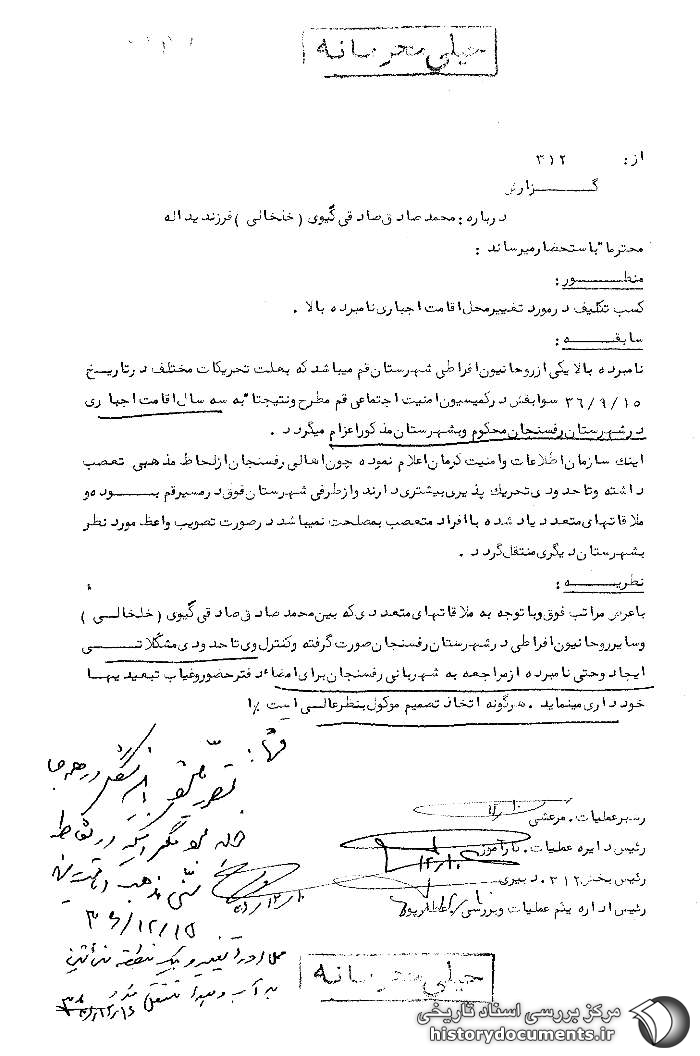 خیلی محرمانه
از : ۳۱۲
گزارش
درباره : محمد صادق صادقی گیوی ( خلخالی ) فرزند یداله
محترما" باستحضار میرساند :
منظور :
کسب تکلیف در مورد تغییر محل اقامت اجباری نامبرده بالا .
سابقه :
نامبرده بالا یکی از روحانیون افراطی شهرستان قم میباشد که بعلت تحریکات مختلف در تاریخ
۳۶/۹/۱۵ سوابقش در کمیسیون امنیت اجتماعی قم مطرح و نتیجتا" به سه سال اقامت اجباری
در شهرستان رفسنجان محکوم و بشهرستان مذکور اعزام میگردد .
اینک سازمان اطلاعات و امنیت کرمان اعلام نموده چون اهالی رفسنجان از لحاظ مذهبی تعصب
داشته و تا حدودی تحریک پذیری بیشتری دارند و از طرفی شهرستان فوق در مسیر قم بوده و
ملاقاتهای متعدد یاد شده با افراد متعصب بمصلحت نمیباشد در صورت تصویب واعظ مورد نظر
بشهرستان دیگری منتقل گردد .
نظریه :
با عرض مراتب فوق و با توجه به ملاقاتهای متعددی که بین محمد صادق صادقی گیوی ( خلخالی )
و سایر روحانیون افراطی در شهرستان رفسنجان صورت گرفته و کنترل وی تا حدودی مشکلاتی
ایجاد و حتی نامبرده از مراجعه به شهربانی رفسنجان برای امضاء دفتر حضور و غیاب تبعیدیها
خودداری مینماید . هرگونه اتخاذ تصمیم موکول بنظر عالی است
رهبر عملیات . مرعشی
رئیس دایره عملیات . کارآموز
۱۲/۱۰
رئیس بخش ۳۱۲ . دبیری
رئیس اداره یکم عملیات و بررسی . عطارپور
در همه جا
مگر اینکه در نقاط
سنی مذهب اقامت
۳۶/۱۲/۱۵
منطقه
به آب و هوا منتقل
خیلی محرمانه
مرکز بررسی اسناد تاریخی
historydocuments.ir